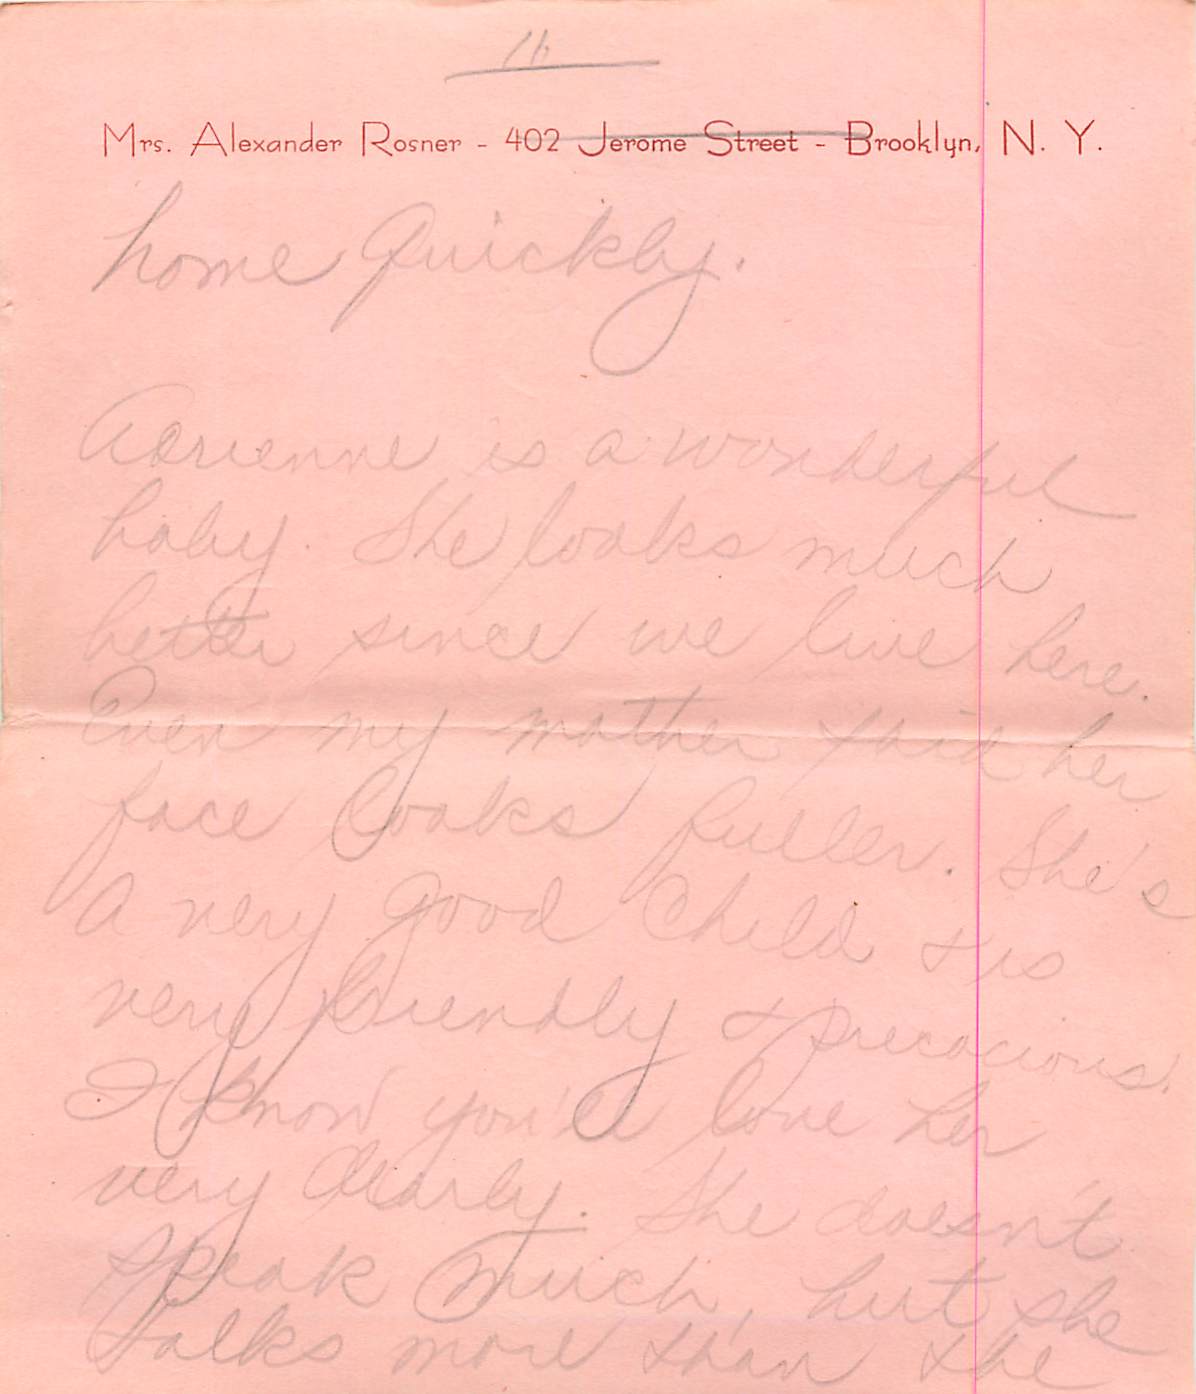 16
Mrs. Alexander Rosner - 402 Jerome Street - Brooklyn, N. Y.
home quickly.
Adrienne is a wonderful
baby. She looks much
better since we live here.
Even my mother said her
face looks fuller. She's
a very good child & is
very friendly & precocious.
I know you'll love her
very dearly. She doesn't
speak much, but she
talks more than the